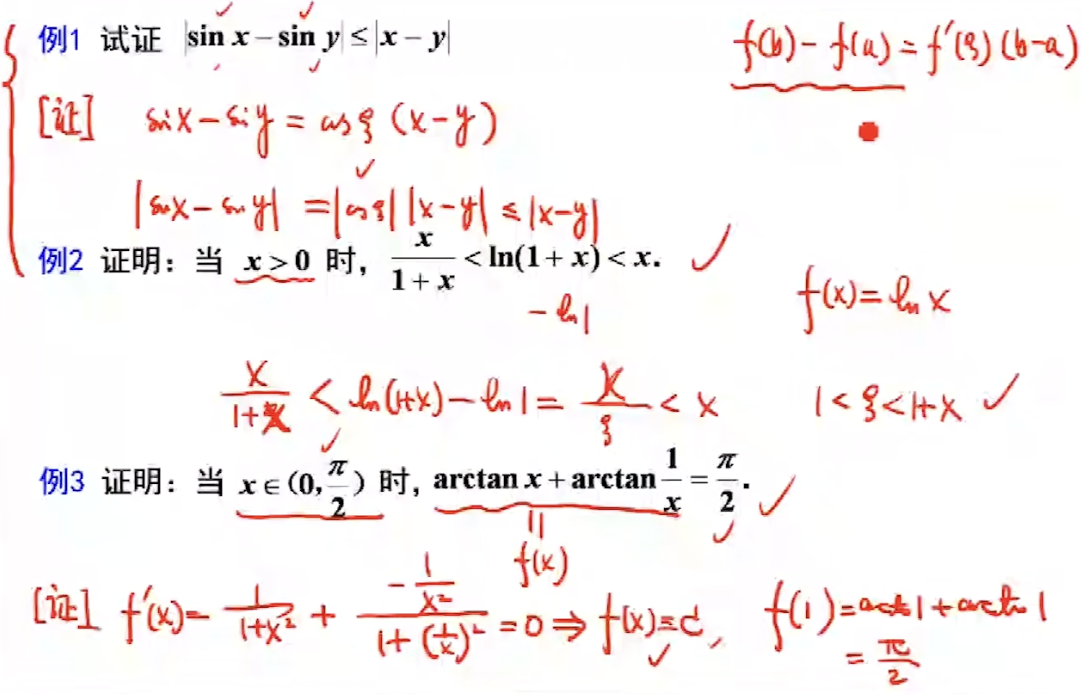 例1 试证 |sin x − sin y| ≤ |x − y|
f(b) − f(a) = f′(ξ)(b−a)
[证] sinx − siny = cosξ (x−y)
|sinx − siny| = |cosξ| |x−y| ≤ |x−y|
例2 证明：当 x > 0 时， x/(1 + x) < ln(1 + x) < x.
− ln1
f(x) = ln x
x/(1+x) < ln(1+x) − ln1 = x/ξ < x
1 < ξ < 1+x
例3 证明：当 x ∈ (0, π/2) 时， arctan x + arctan 1/x = π/2.
||
f(x)
[证] f′(x) = 1/(1+x²) + (−1/x²)/(1+(1/x)²) = 0 ⇒ f(x) ≡ C,
f(1) = arctan1 + arctan1
= π/2